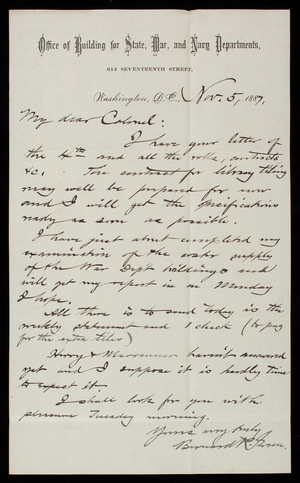 Office of Building for State, War, and Navy Departments,
612 SEVENTEENTH STREET,
Washington, D.C., Nov. 5, 1887.
My dear Colonel:
I have your letter of
the 4th and all the rolls, contracts
&c. The contract for library tiling
may well be prepared for now
and I will get the specifications
ready as soon as possible.
I have just about completed my
examination of the water supply
of the War Dept buildings and
will get my report in on Monday
I hope.
All there is to send today is the
weekly statement and 1 check (to pay
for the extra tiles)
Henry & haven't answered
yet and I suppose it is hardly time
to expect it.
I shall look for you with
pleasure Tuesday morning.
Yours very truly
Bernard R. Green